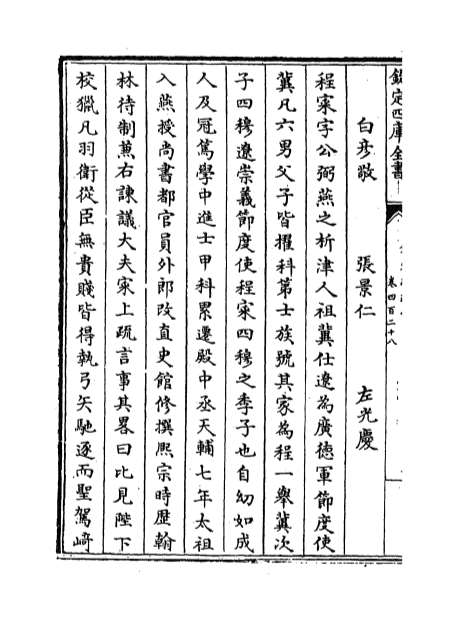 欽定四庫全書
卷四百二十八
白彦敬　張景仁　左光慶
程寀字公弼燕之析津人祖冀仕遼為廣徳軍節度使
冀凡六男父子皆擢科第士族號其家為程一舉冀次
子四穆遼崇義節度使程寀四穆之季子也自幼如成
人及冠篤學中進士甲科累遷殿中丞天輔七年太祖
入燕授尚書都官員外郎改直史館修撰熙宗時歴翰
林待制蕪右諫議大夫寀上疏言事其畧曰比見陛下
校獵凡羽衛從臣無貴賤皆得執弓矢馳逐而聖駕﨑